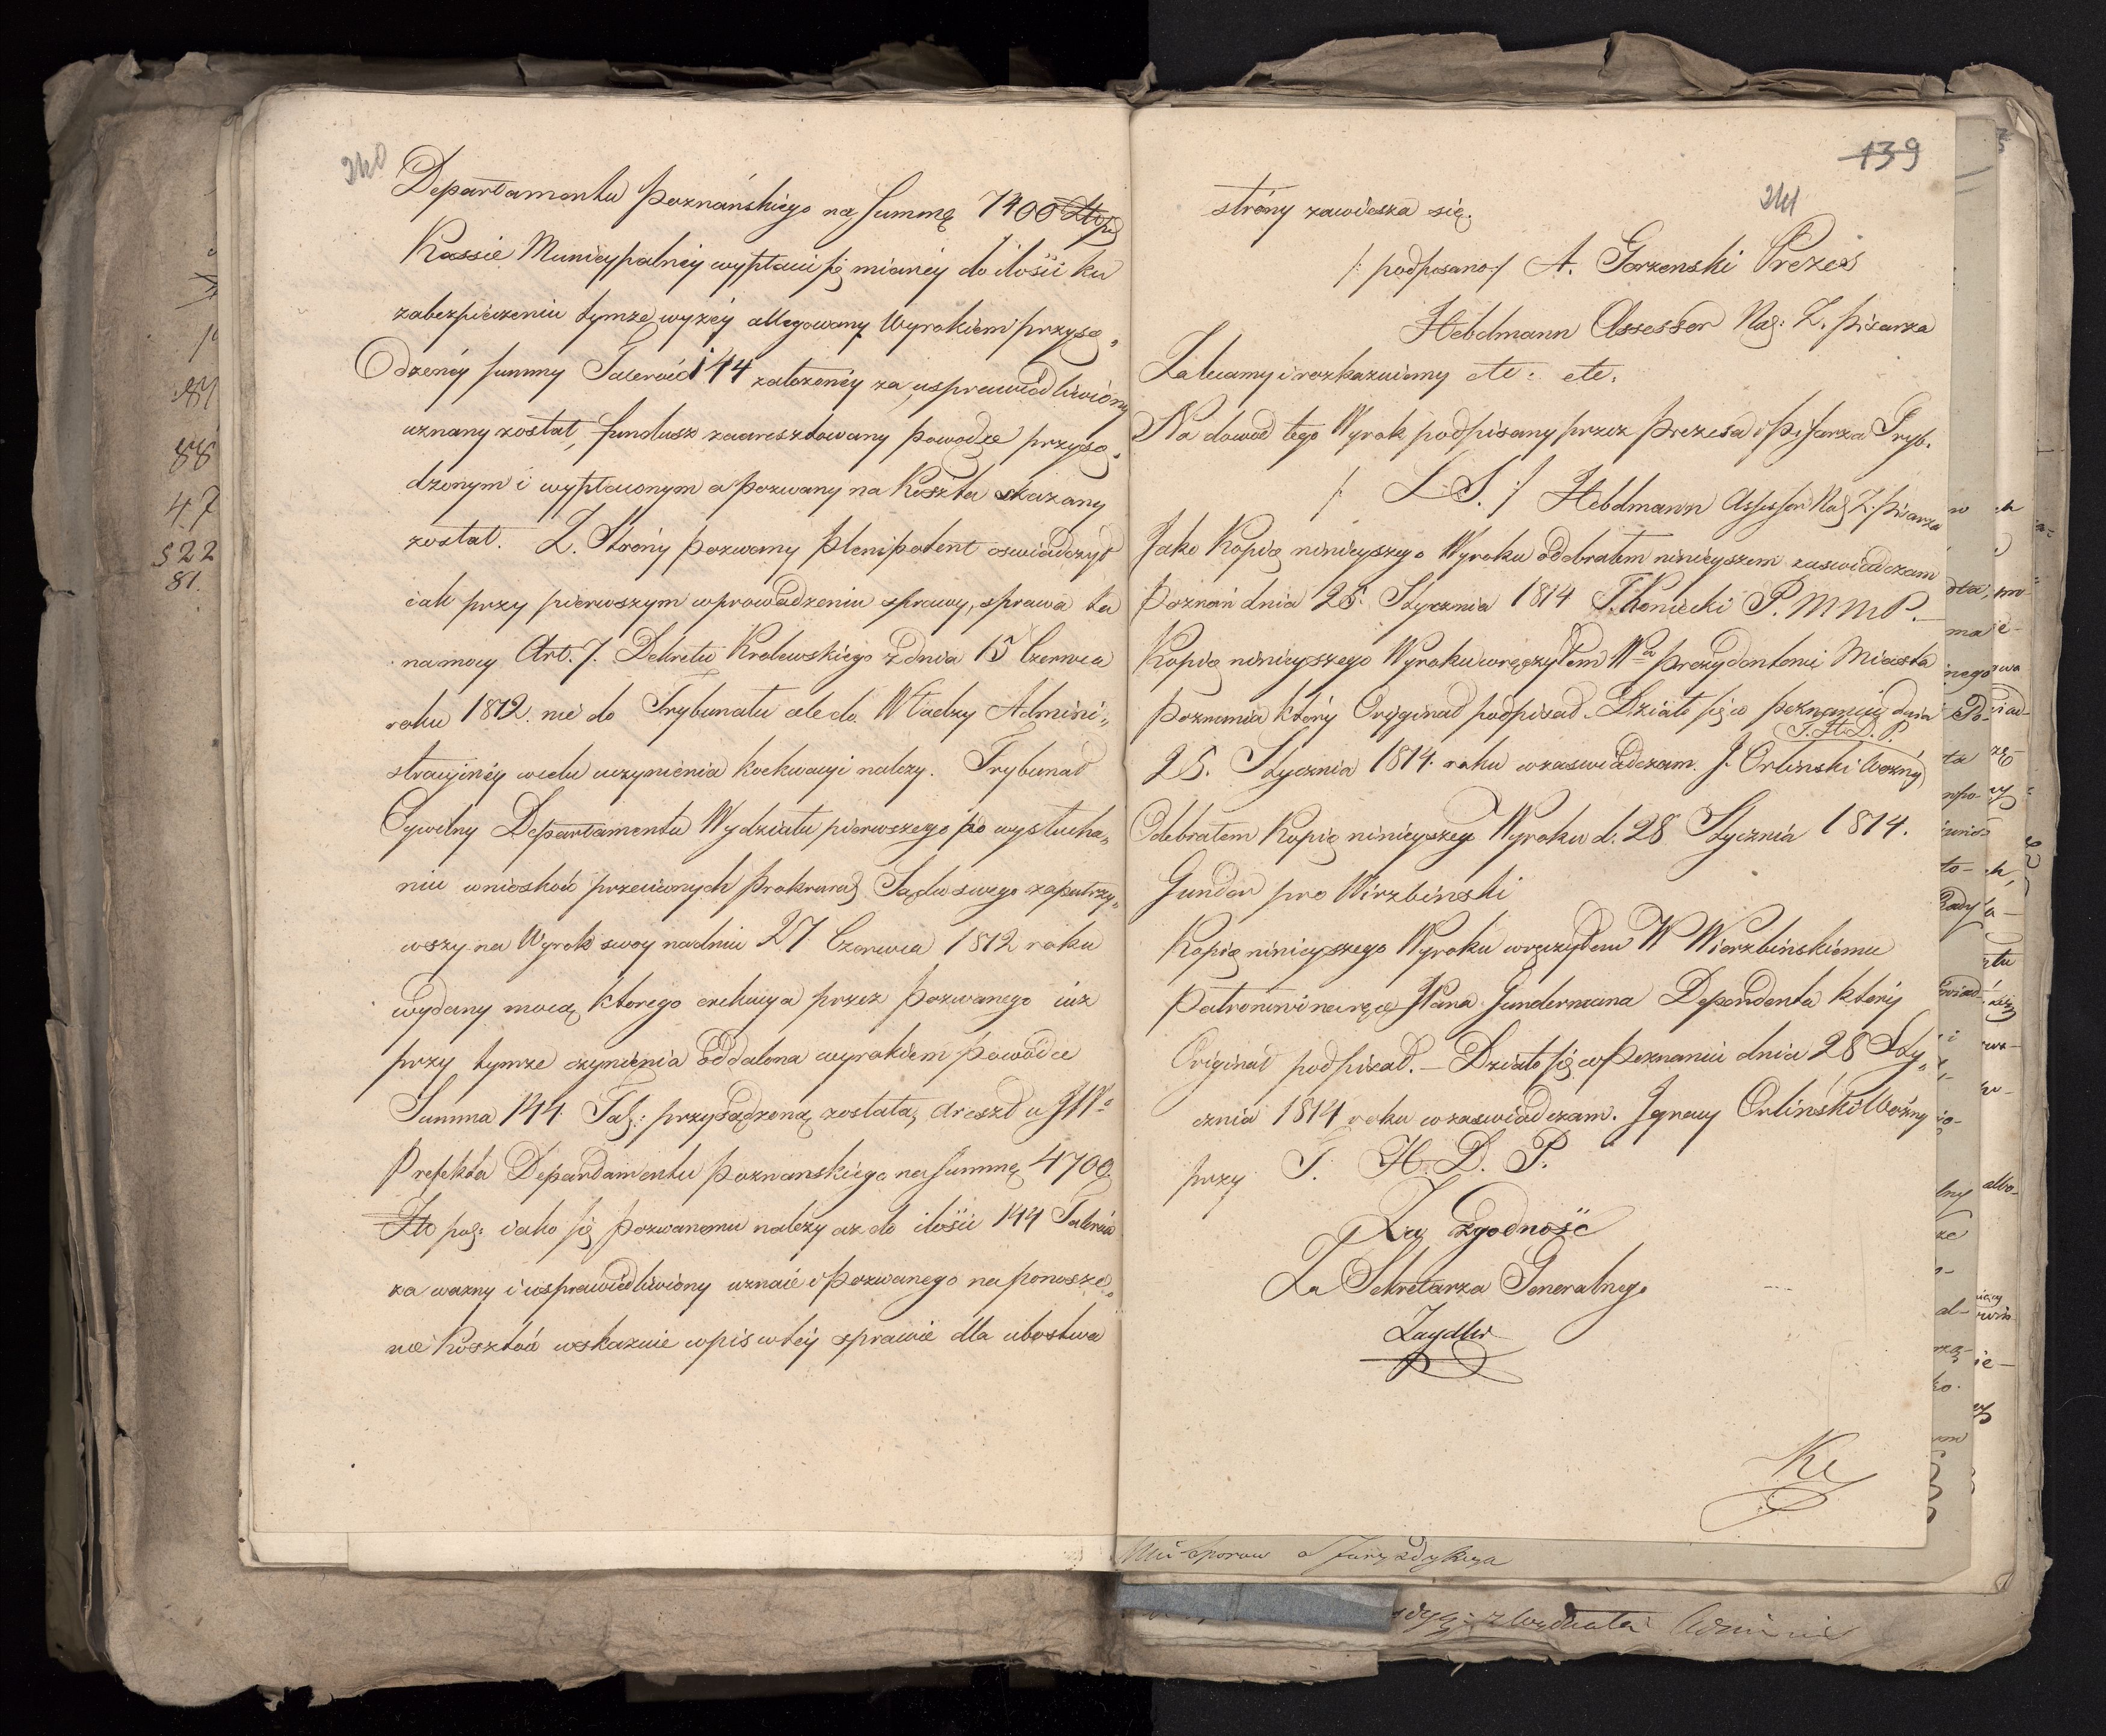 240
Departamentu Poznańskiego na summę 7400 Złotp
Kassie Municypalney wypłacić się mianey do ilości ku
zabezpieczeniu tymże wyżey allegowany Wyrokiem przysą„
dzoney summy Talerów 144 założoney za usprawiedliwiony
uznany został, fundusz zaaresztowany Powodce przysą„
dzonym i wypłaconym a Pozwany na koszta skazany
został. Z. Strony pozwany Plenipotent oswiadczył
iak przy pierwszym wprowadzeniu sprawy, sprawa ta
na mocy Art. 7. Dekretu Krolewskiego z dnia 15 Czerwca
roku 1812. nie do Trybunału ale do Władzy Admini„
stracyiney wcelu uczynienia exekucyi należy. Trybunał
Cywilny Departamentu Wydziału pierwszego po wysłucha„
niu wniosków przeciwnych Prokurat Sądu swego zapatrzy„
wszy na Wyrok swoy na dniu 27 Czerwca 1812 roku
wydany mocą ktorego exekucya przez Pozwanego iuż
przy tymże czynienia oddalona wyrokiem Powodce
Summa 144 Tal: przysądzoną została, areszt u JWo
Prefekta Departamentu Poznanskiego na summę 4700
Zło pol: iako się Pozwanemu należy aż do ilości 144 Talerów
za ważny i usprawiedliwiony uznaie i Pozwanego na ponosze„
nie Kosztów wskazuie wpis w tey sprawie dla ubostwa
139
241
strony zawiesza się.
/: podpisano :/ A. Gorzenski Prezes
Hebdmann Assessor Nad: Z. Pisarza
Zalecamy i rozkazuiemy etc: etc.
Na dowod tego Wyrok podpisany przez Prezesa i Pisarza Tryb.
/: L.S. :/ Hebdmann Assessor Nad Z. Pisarza
Jako Kopią ninieyszego Wyroku odebrałem ninieyszem zaswiadczam
Poznań dnia 25. Stycznia 1814 T. Koniecki P. M M P.
Kopią ninieyszego Wyroku wręczyłem Wu Prezydentowi Miasta
Poznania który Oryginał podpisał. Działo się w Poznaniu dnia
T. H. D. P.
25. Stycznia 1814. roku wzaswiadczam. J. Orlinski Woźny
Odebrałem Kopią ninieyszego Wyroku d. 28 Stycznia 1814.
Gunder pro Wirzbiński
Kopią ninieyszego Wyroku wręczyłem W Wierzbińskiemu
Patronowi na ręce JPana Gundermana Dependenta który
Originał podpisał. – Działo się w Poznaniu dnia 28 Sty„
cznia 1814 roku wzaswiadczam. Jgnacy Orliński Woźny
przy T. H. D. P.
Za zgodność
Za Sekretarza Generalnego
Zaydler